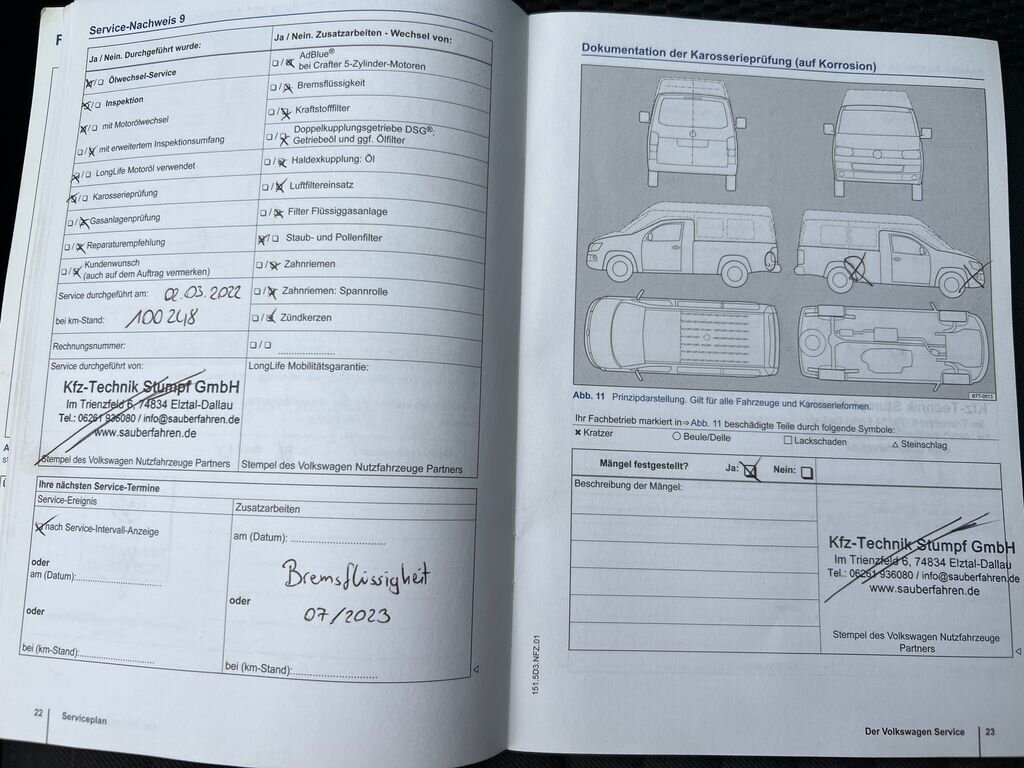 Service-Nachweis 9
Ja / Nein. Durchgeführt wurde:
Ölwechsel-Service
Inspektion
mit Motorölwechsel
mit erweitertem Inspektionsumfang
LongLife Motoröl verwendet
Karosserieprüfung
Gasanlagenprüfung
Reparaturempfehlung
Kundenwunsch
(auch auf dem Auftrag vermerken)
Service durchgeführt am: 02.03.2022
bei km-Stand: 100248
Rechnungsnummer:
Service durchgeführt von:
Kfz-Technik Stumpf GmbH
Im Trienzfeld 6, 74834 Elztal-Dallau
Tel.: 06261 936080 / info@sauberfahren.de
www.sauberfahren.de
Stempel des Volkswagen Nutzfahrzeuge Partners
Ja / Nein. Zusatzarbeiten - Wechsel von:
AdBlue®
bei Crafter 5-Zylinder-Motoren
Bremsflüssigkeit
Kraftstofffilter
Doppelkupplungsgetriebe DSG®:
Getriebeöl und ggf. Ölfilter
Haldexkupplung: Öl
Luftfiltereinsatz
Filter Flüssiggasanlage
Staub- und Pollenfilter
Zahnriemen
Zahnriemen: Spannrolle
Zündkerzen
LongLife Mobilitätsgarantie:
Stempel des Volkswagen Nutzfahrzeuge Partners
Ihre nächsten Service-Termine
Service-Ereignis
nach Service-Intervall-Anzeige
oder
am (Datum):
oder
bei (km-Stand):
Zusatzarbeiten
am (Datum):
Bremsflüssigkeit
oder
07/2023
bei (km-Stand):
22 Serviceplan
Dokumentation der Karosserieprüfung (auf Korrosion)
BTT-0513
Abb. 11 Prinzipdarstellung. Gilt für alle Fahrzeuge und Karosserieformen.
Ihr Fachbetrieb markiert in ⇒ Abb. 11 beschädigte Teile durch folgende Symbole:
Kratzer Beule/Delle Lackschaden Steinschlag
Mängel festgestellt? Ja: Nein:
Beschreibung der Mängel:
Kfz-Technik Stumpf GmbH
Im Trienzfeld 6, 74834 Elztal-Dallau
Tel.: 06261 936080 / info@sauberfahren.de
www.sauberfahren.de
Stempel des Volkswagen Nutzfahrzeuge
Partners
151.5D3.NFZ.01
Der Volkswagen Service 23